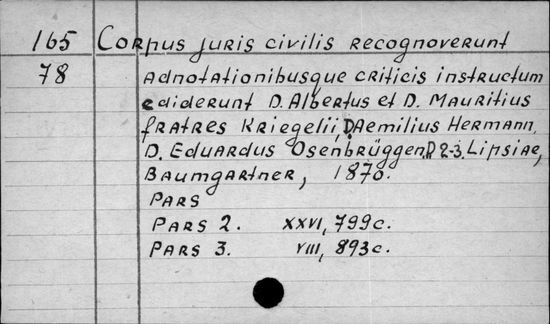 165 Corpus juris civilis recognoverunt
78 adnotationibusque criticis instructum
ediderunt D. Albertus et D. Mauritius
fratres Kriegelii, D. Aemilius Hermann,
D. Eduardus Osenbrüggen. P 2-3. Lipsiae,
Baumgartner, 1870.
Pars
Pars 2. XXVI, 799c.
Pars 3. VIII, 893c.